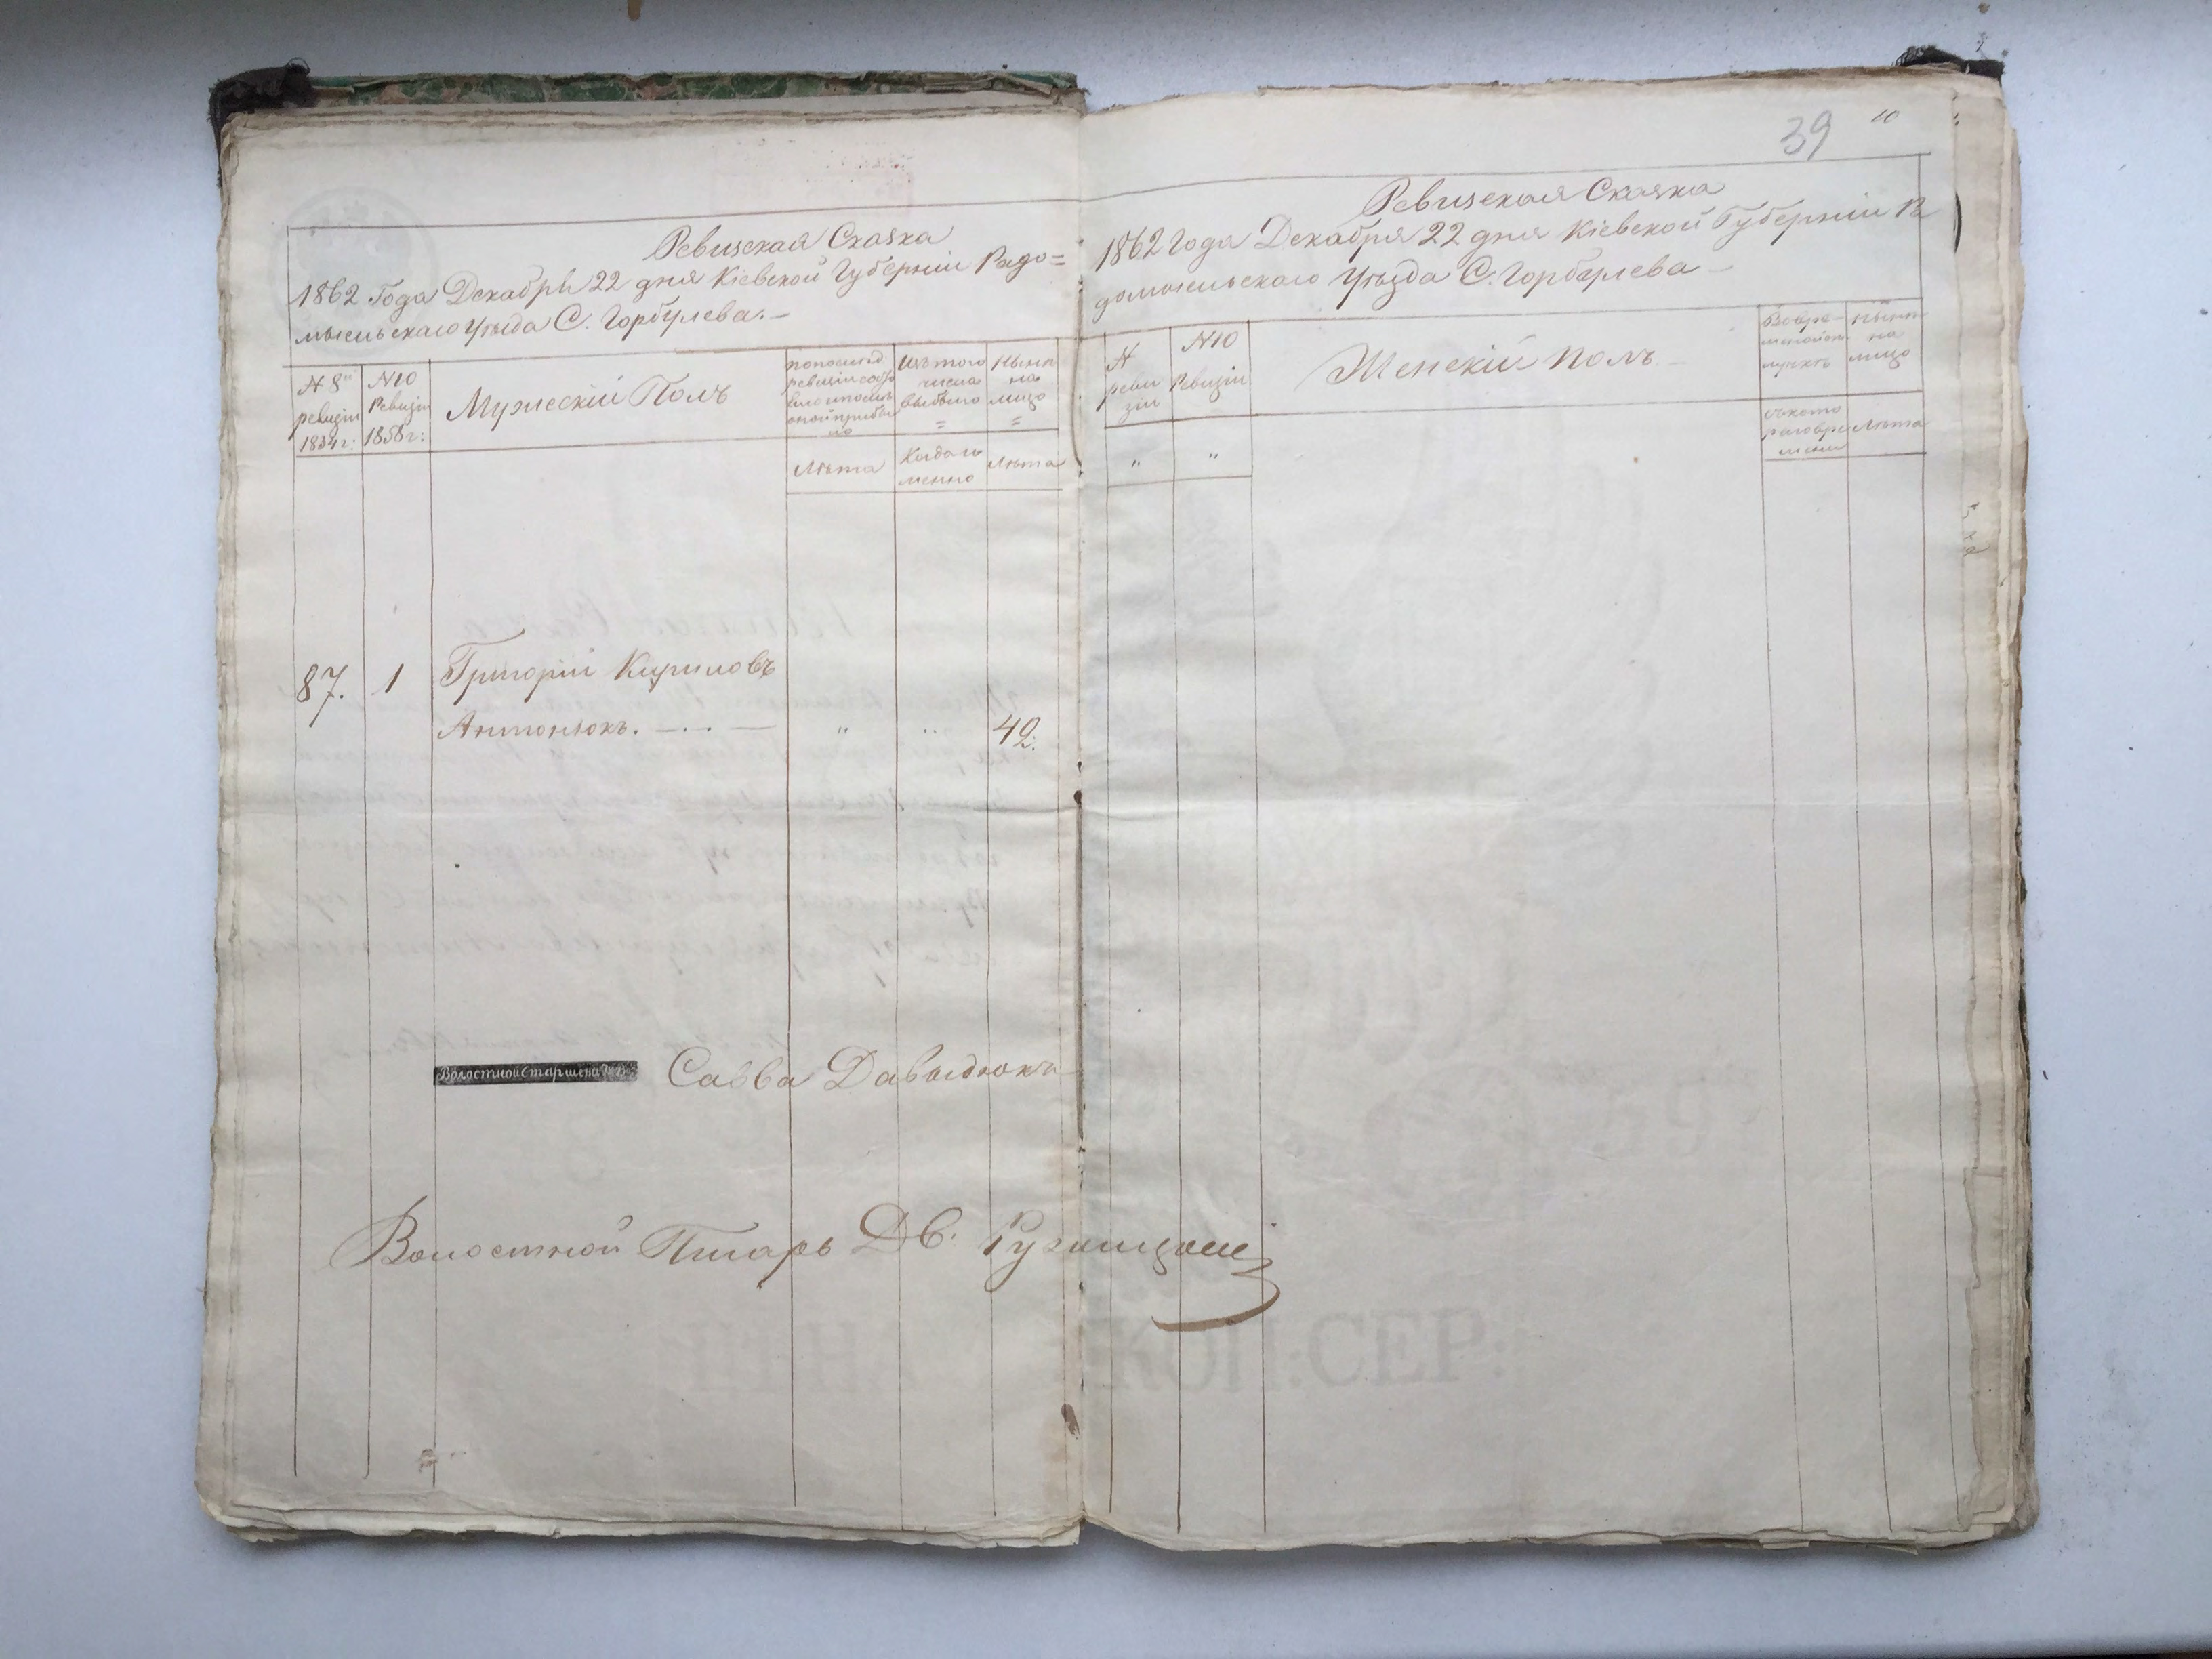 Ревизская Сказка
1862 Года Декабря 22 дня Кіевской Губерніи Радо=
мысльскаго Уѣзда С. Горбулева. –
№ 8й
ревизіи
1834 г:
№ 10
Ревизіи
1858 г:
Мужескій Полъ
Изъ того
числа
выбыло
=
Нынѣ
на
лицо
=
Лѣта
Когда
именно
Лѣта
87. 1 Григорій Кириловъ
Антонюкъ. — . . — " " 42.
Волостной Старшина Савва Давыдюкъ
Волостной Писарь Дв.
39 10
Ревизская Сказка
1862 Года Декабря 22 дня Кіевской Губерніи Ра
домысльскаго Уѣзда С. Горбулева –
№
реви
зіи
№ 10
Ревизіи
Женскій полъ
Во вре-
менной от-
лучкѣ
Нынѣ
на
лицо
съ кото
раго вре
мени
Лѣта
" "
КОП:СЕР: